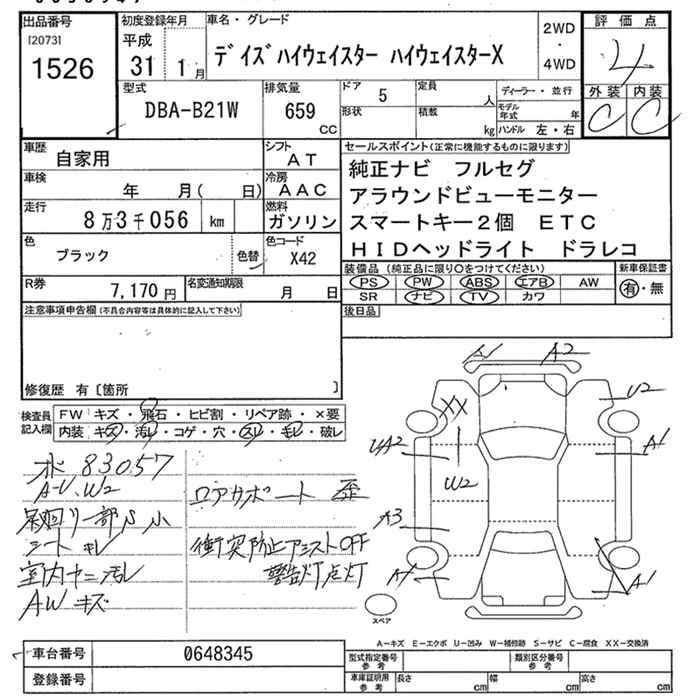 出品番号
[2073]
1526
初度登録年月
平成
31 1月
車名・グレード
デイズハイウェイスター ハイウェイスターX
2WD
・
4WD
評価点
4
外装 内装
C C
型式
DBA-B21W
排気量
659
CC
ドア 5
形状
定員
人
積載
kg
ディーラー・並行
モデル年式 年
ハンドル 左・右
車歴
自家用
シフト
AT
車検
年 月( 日)
冷房
AAC
走行
8万3千056 km
燃料
ガソリン
色
ブラック
色替
色コード
X42
R券
7,170円
名変通知期限
月 日
セールスポイント(正常に機能するものに限ります)
純正ナビ フルセグ
アラウンドビューモニター
スマートキー2個 ETC
HIDヘッドライト ドラレコ
装備品(純正品に限り○をつけてください)
PS PW ABS エアB AW
SR ナビ TV カワ
新車保証書
有・無
後日品
注意事項申告欄(不具合内容等は具体的に記入して下さい)
修復歴 有〔箇所 〕
検査員記入欄
FW キズ・飛石・ヒビ割・リペア跡・×要
内装 キズ・汚レ・コゲ・穴・スレ・モレ・破レ
水 83057
A-U、W2
シート キレ
室内ヤニ汚レ
AW キズ
ロアサポート 歪
衝突防止アシストOFF
警告灯点灯
A A2
XX
U2
UA2
W2
A1
A3
A1
スペア
A-キズ E-エクボ U-凹み W-補修跡 S-サビ C-腐食 XX-交換済
車台番号 0648345
登録番号
型式指定番号参考
類別区分番号参考
車庫証明用参考
長さ cm
幅 cm
高さ cm